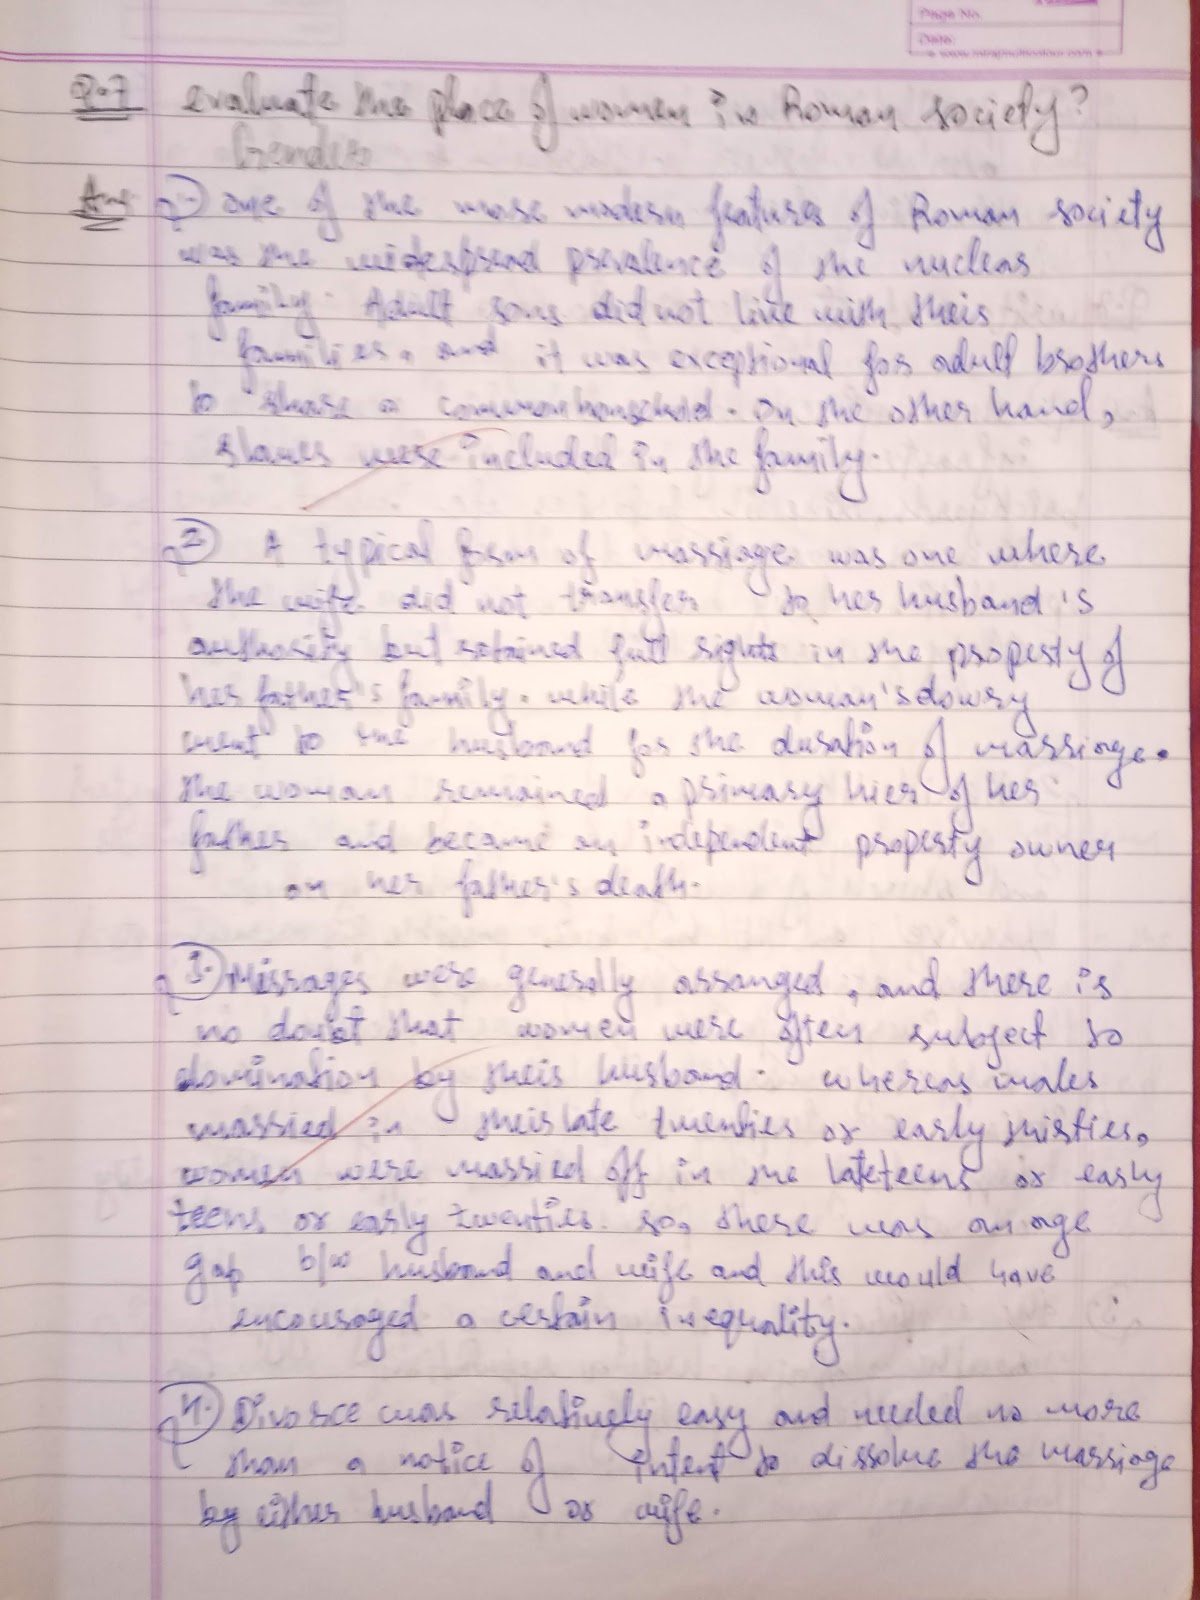 Page No.
Date:
www.mirajmulticolour.com
Q.7 evaluate the place of women in Roman society?
Gender
Ans 1. one of the more modern features of Roman society
was the widespread prevalence of the nuclear
family. Adult sons did not live with their
families, and it was exceptional for adult brothers
to share a common household. on the other hand,
slaves were included in the family.
2. A typical form of marriage was one where
the wife did not transfer to her husband's
authority but retained full rights in the property of
her father's family. while the woman's dowry
went to the husband for the duration of marriage.
the woman remained a primary hier of her
father and became an independent property owner
on her father's death.
3. Mirrages were generally arranged, and there is
no doubt that women were often subject to
domination by their husband. whereas males
married in their late twenties or early thirties,
women were married off in the late teens or early
teens or early twenties. so, there was an age
gap b/w husband and wife and this would have
encouraged a certain inequality.
4. Divorce was relatively easy and needed no more
than a notice of intent to dissolve the marriage
by either husband or wife.